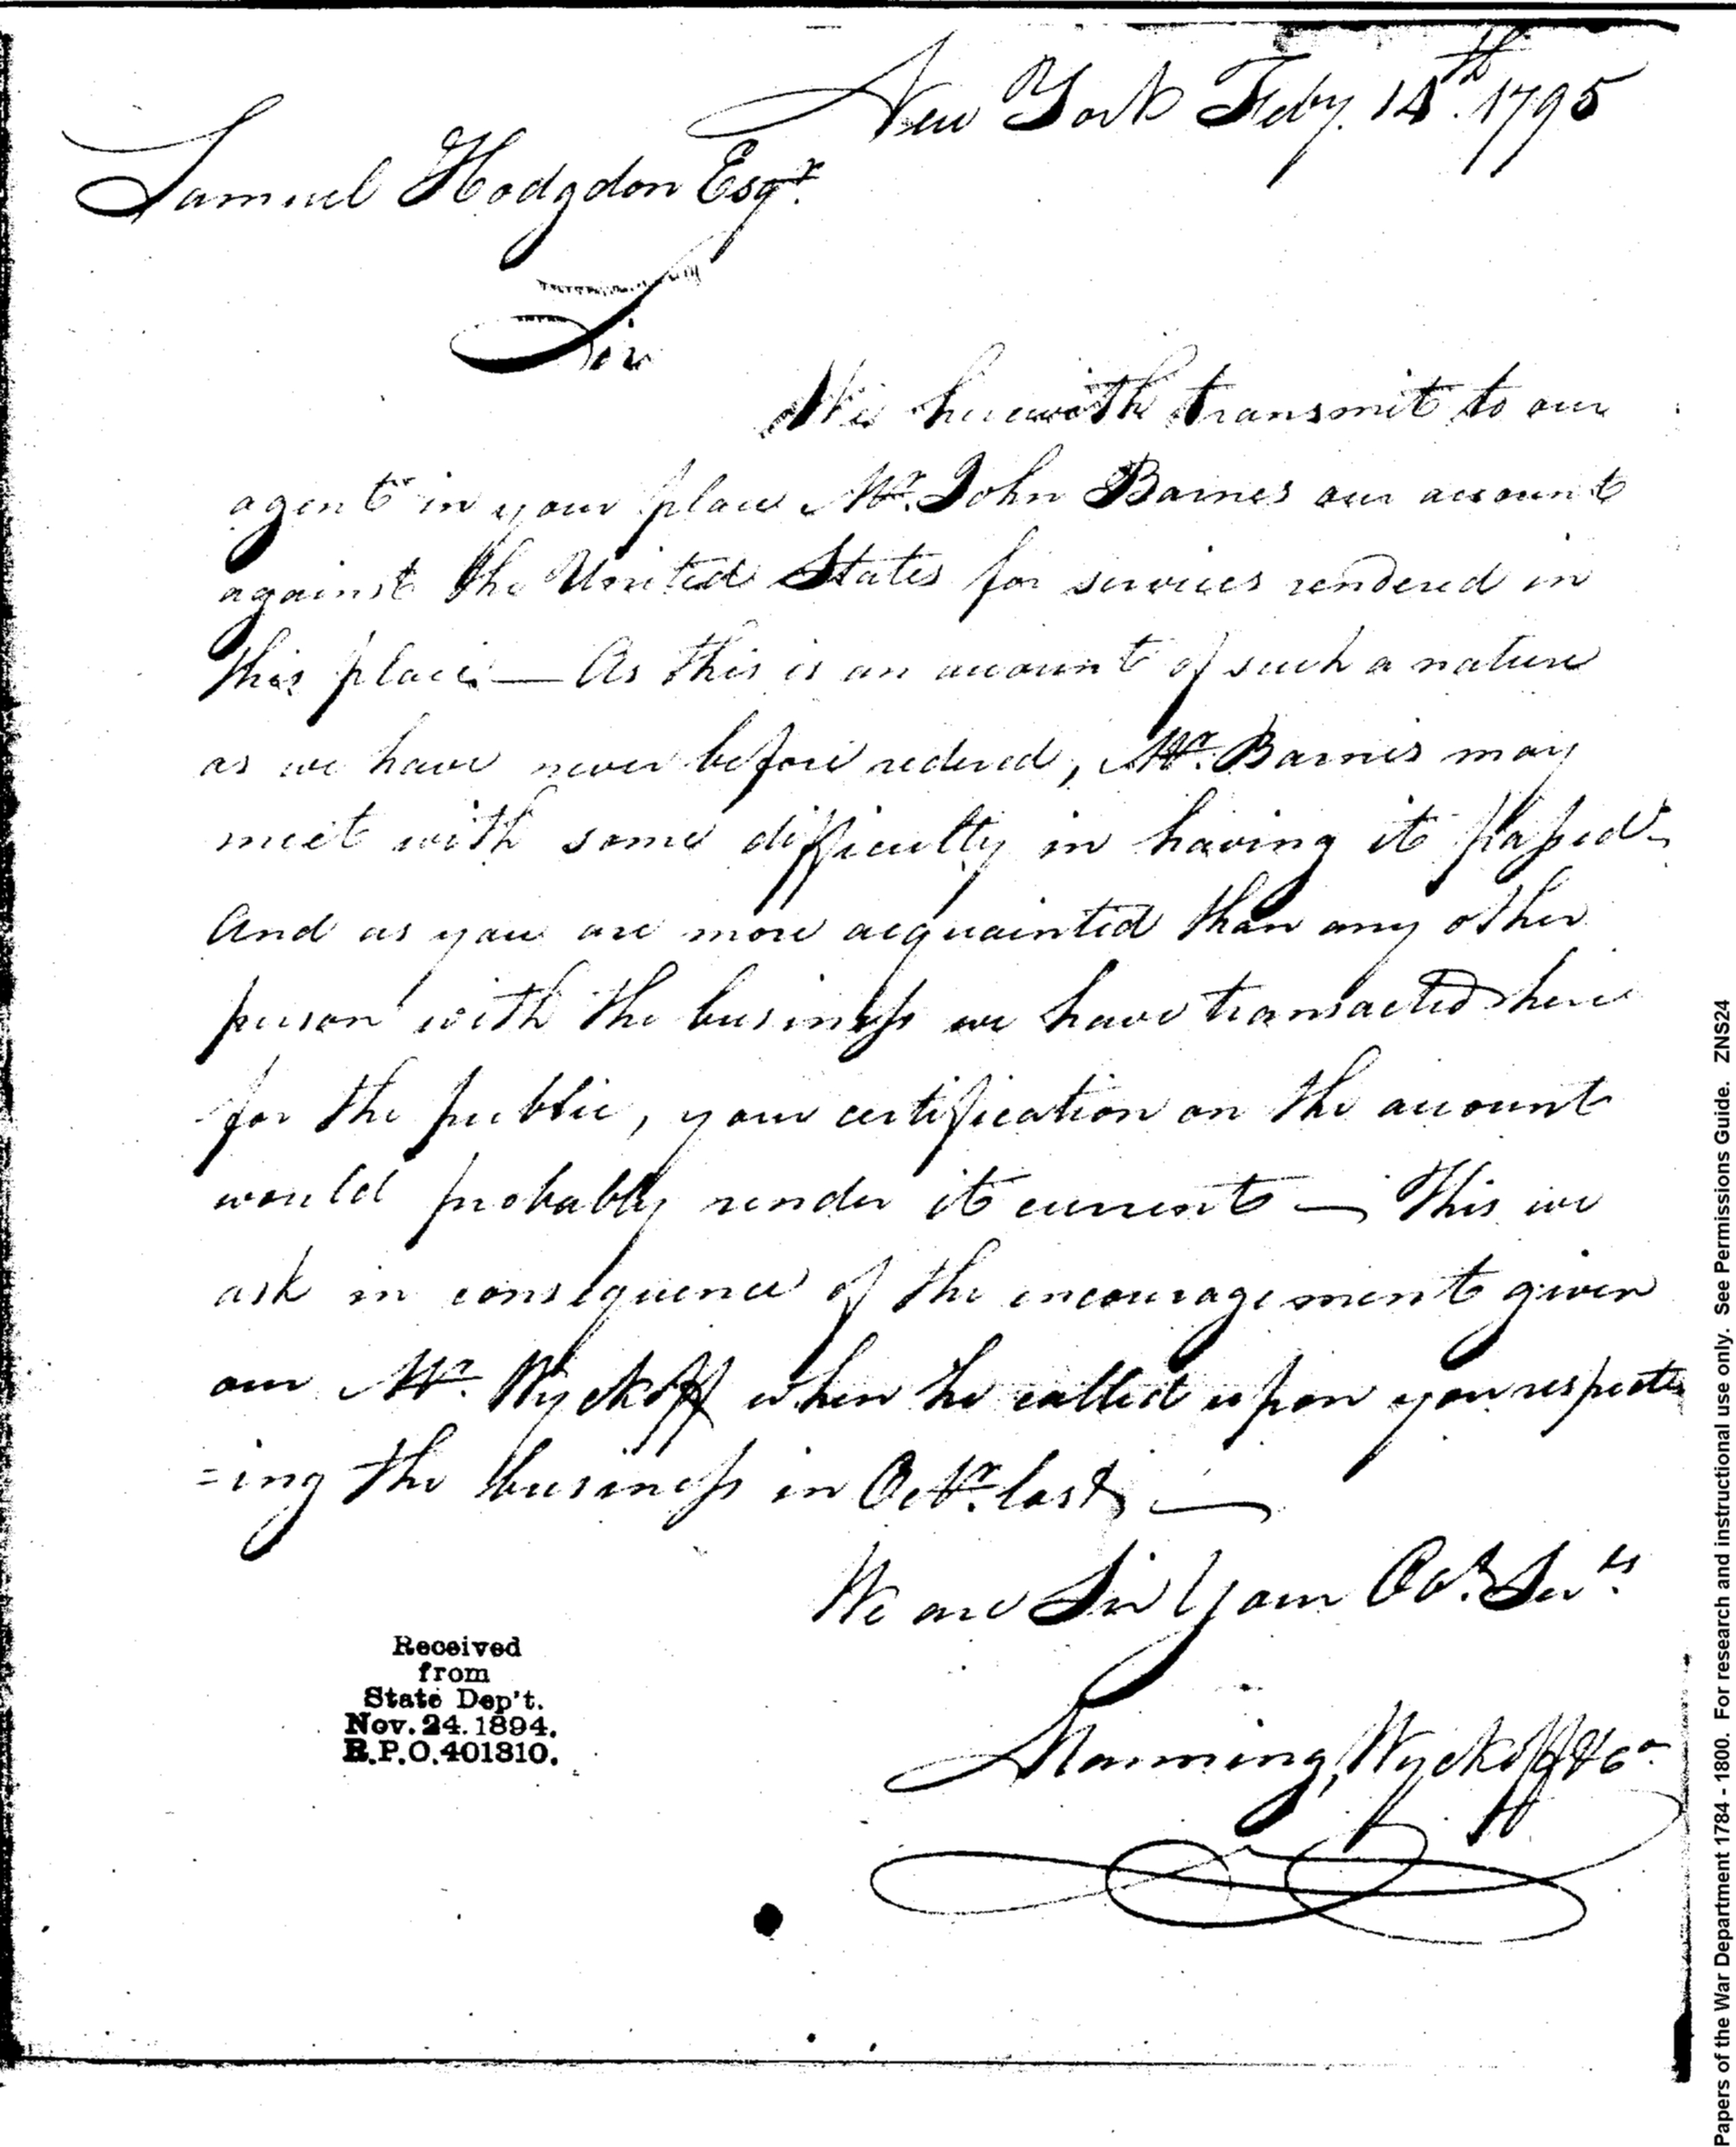 New York Feby. 14th. 1795
Samuel Hodgdon Esqr.
Sir
We herewith transmit to our
agent in your place Mr. John Barnes our account
against the United States for services rendered in
this place — As this is an account of such a nature
as we have never before redered, Mr. Barnes may
meet with some difficulty in having it passed
And as you are more acquainted than any other
person with the business we have transacted here
for the public, your certification on the account
would probably render it current — This we
ask in consequence of the encouragement given
our Mr. Wyckoff when he called upon you respect
=ing the business in Octr. last —
We are Sir Your Obt. Servts.
Manning, Wyckoff & Co
Received
from
State Dep't.
Nov. 24. 1894.
R.P.O. 401810.
Papers of the War Department 1784 - 1800. For research and instructional use only. See Permissions Guide. ZNS24